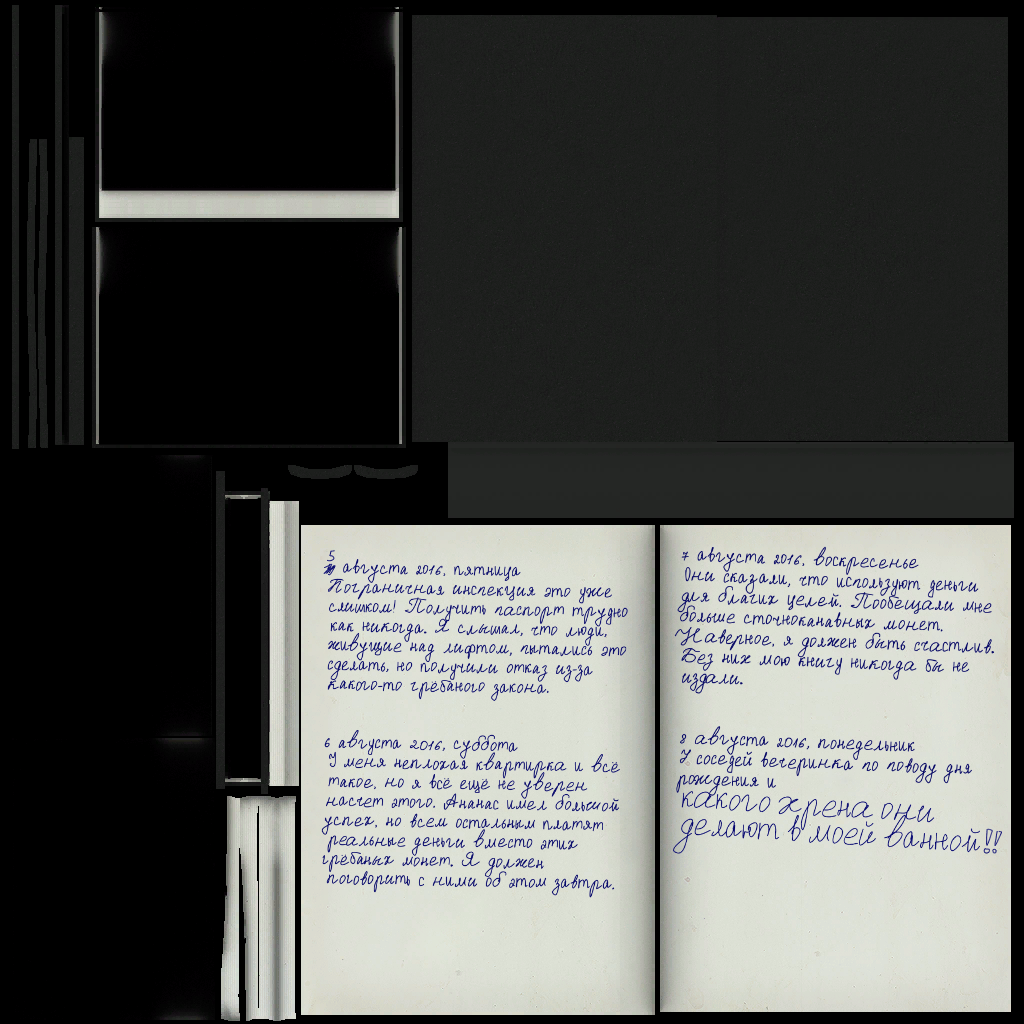 5
августа 2016, пятница
Пограничная инспекция это уже
слишком! Получить паспорт трудно
как никогда. Я слышал, что люди,
живущие над лифтом, пытались это
сделать, но получили отказ из-за
какого-то грёбаного закона.
6 августа 2016, суббота
У меня неплохая квартирка и всё
такое, но я всё ещё не уверен
насчет этого. Ананас имел большой
успех, но всем остальным платят
реальные деньги вместо этих
грёбаных монет. Я должен
поговорить с ними об этом завтра.
7 августа 2016, воскресенье
Они сказали, что используют деньги
для благих целей. Пообещали мне
больше сточноканавных монет.
Наверное, я должен быть счастлив.
Без них мою книгу никогда бы не
издали.
8 августа 2016, понедельник
У соседей вечеринка по поводу дня
рождения и
какого хрена они
делают в моей ванной!!